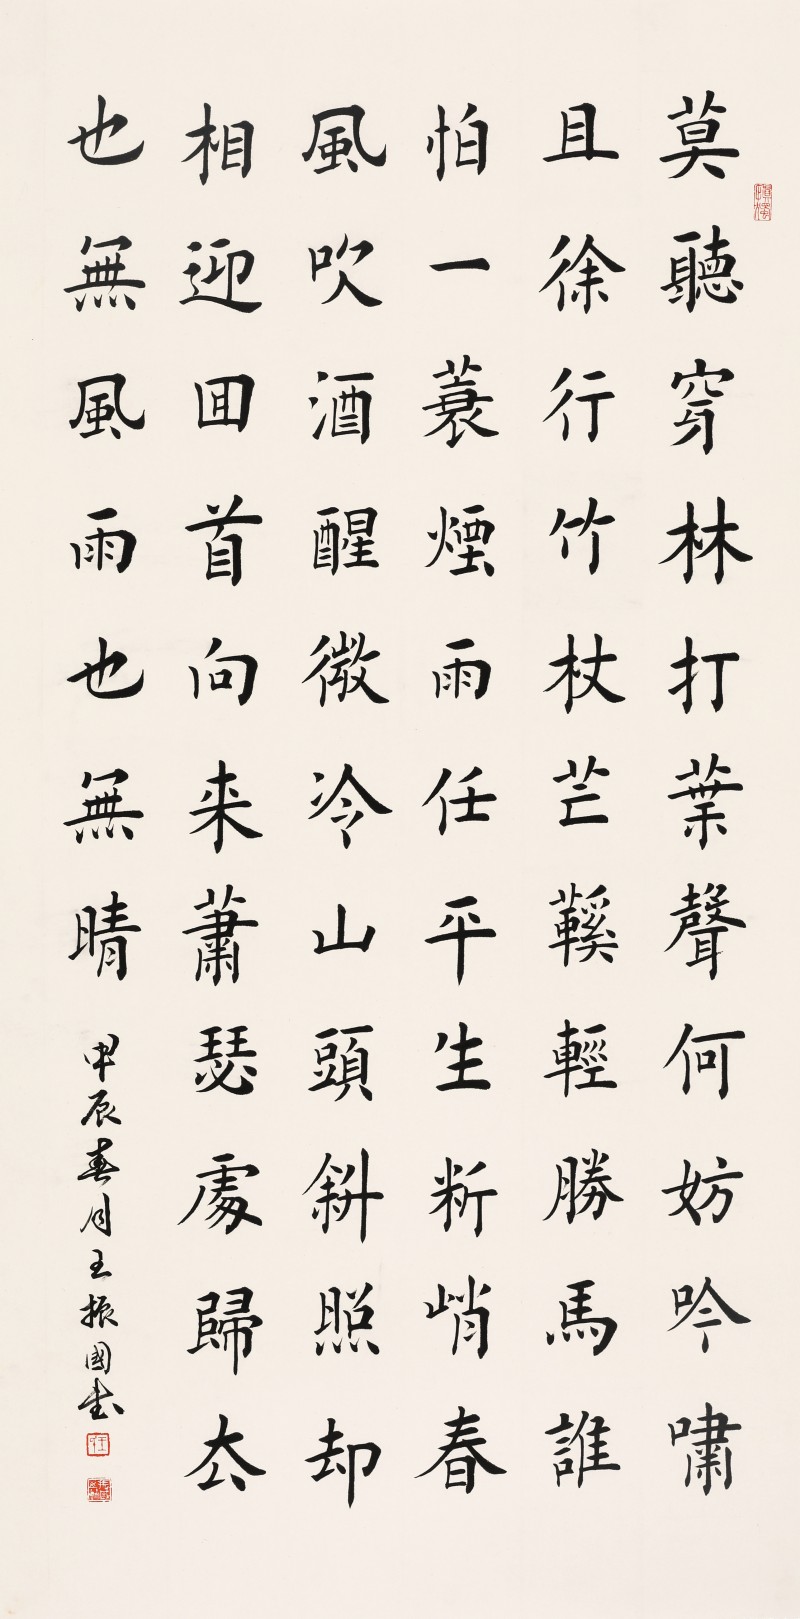 莫聽穿林打葉聲何妨吟嘯
且徐行竹杖芒鞵輕勝馬誰
怕一蓑煙雨任平生料峭春
風吹酒醒微冷山頭斜照却
相迎囬首向来蕭瑟處歸去
也無風雨也無晴
甲辰春月王振國書